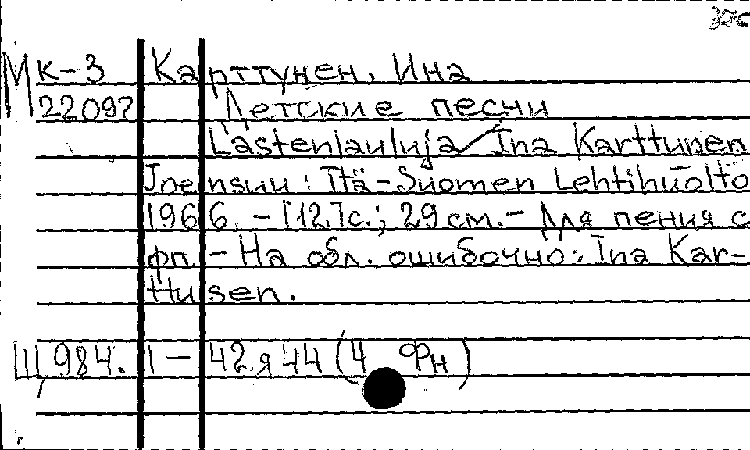 М к-3 Карттунен, Ина
22097 Детские песни
Lastenlauluja / Ina Karttunen
Joensuu: Itä-Suomen Lehtihuolto
1966. - [12] с.; 29 см. - Для пения с
фп. - На обл. ошибочно: Ina Kar-
ttusen.
Щ984.1-42я44 (4 Фн)